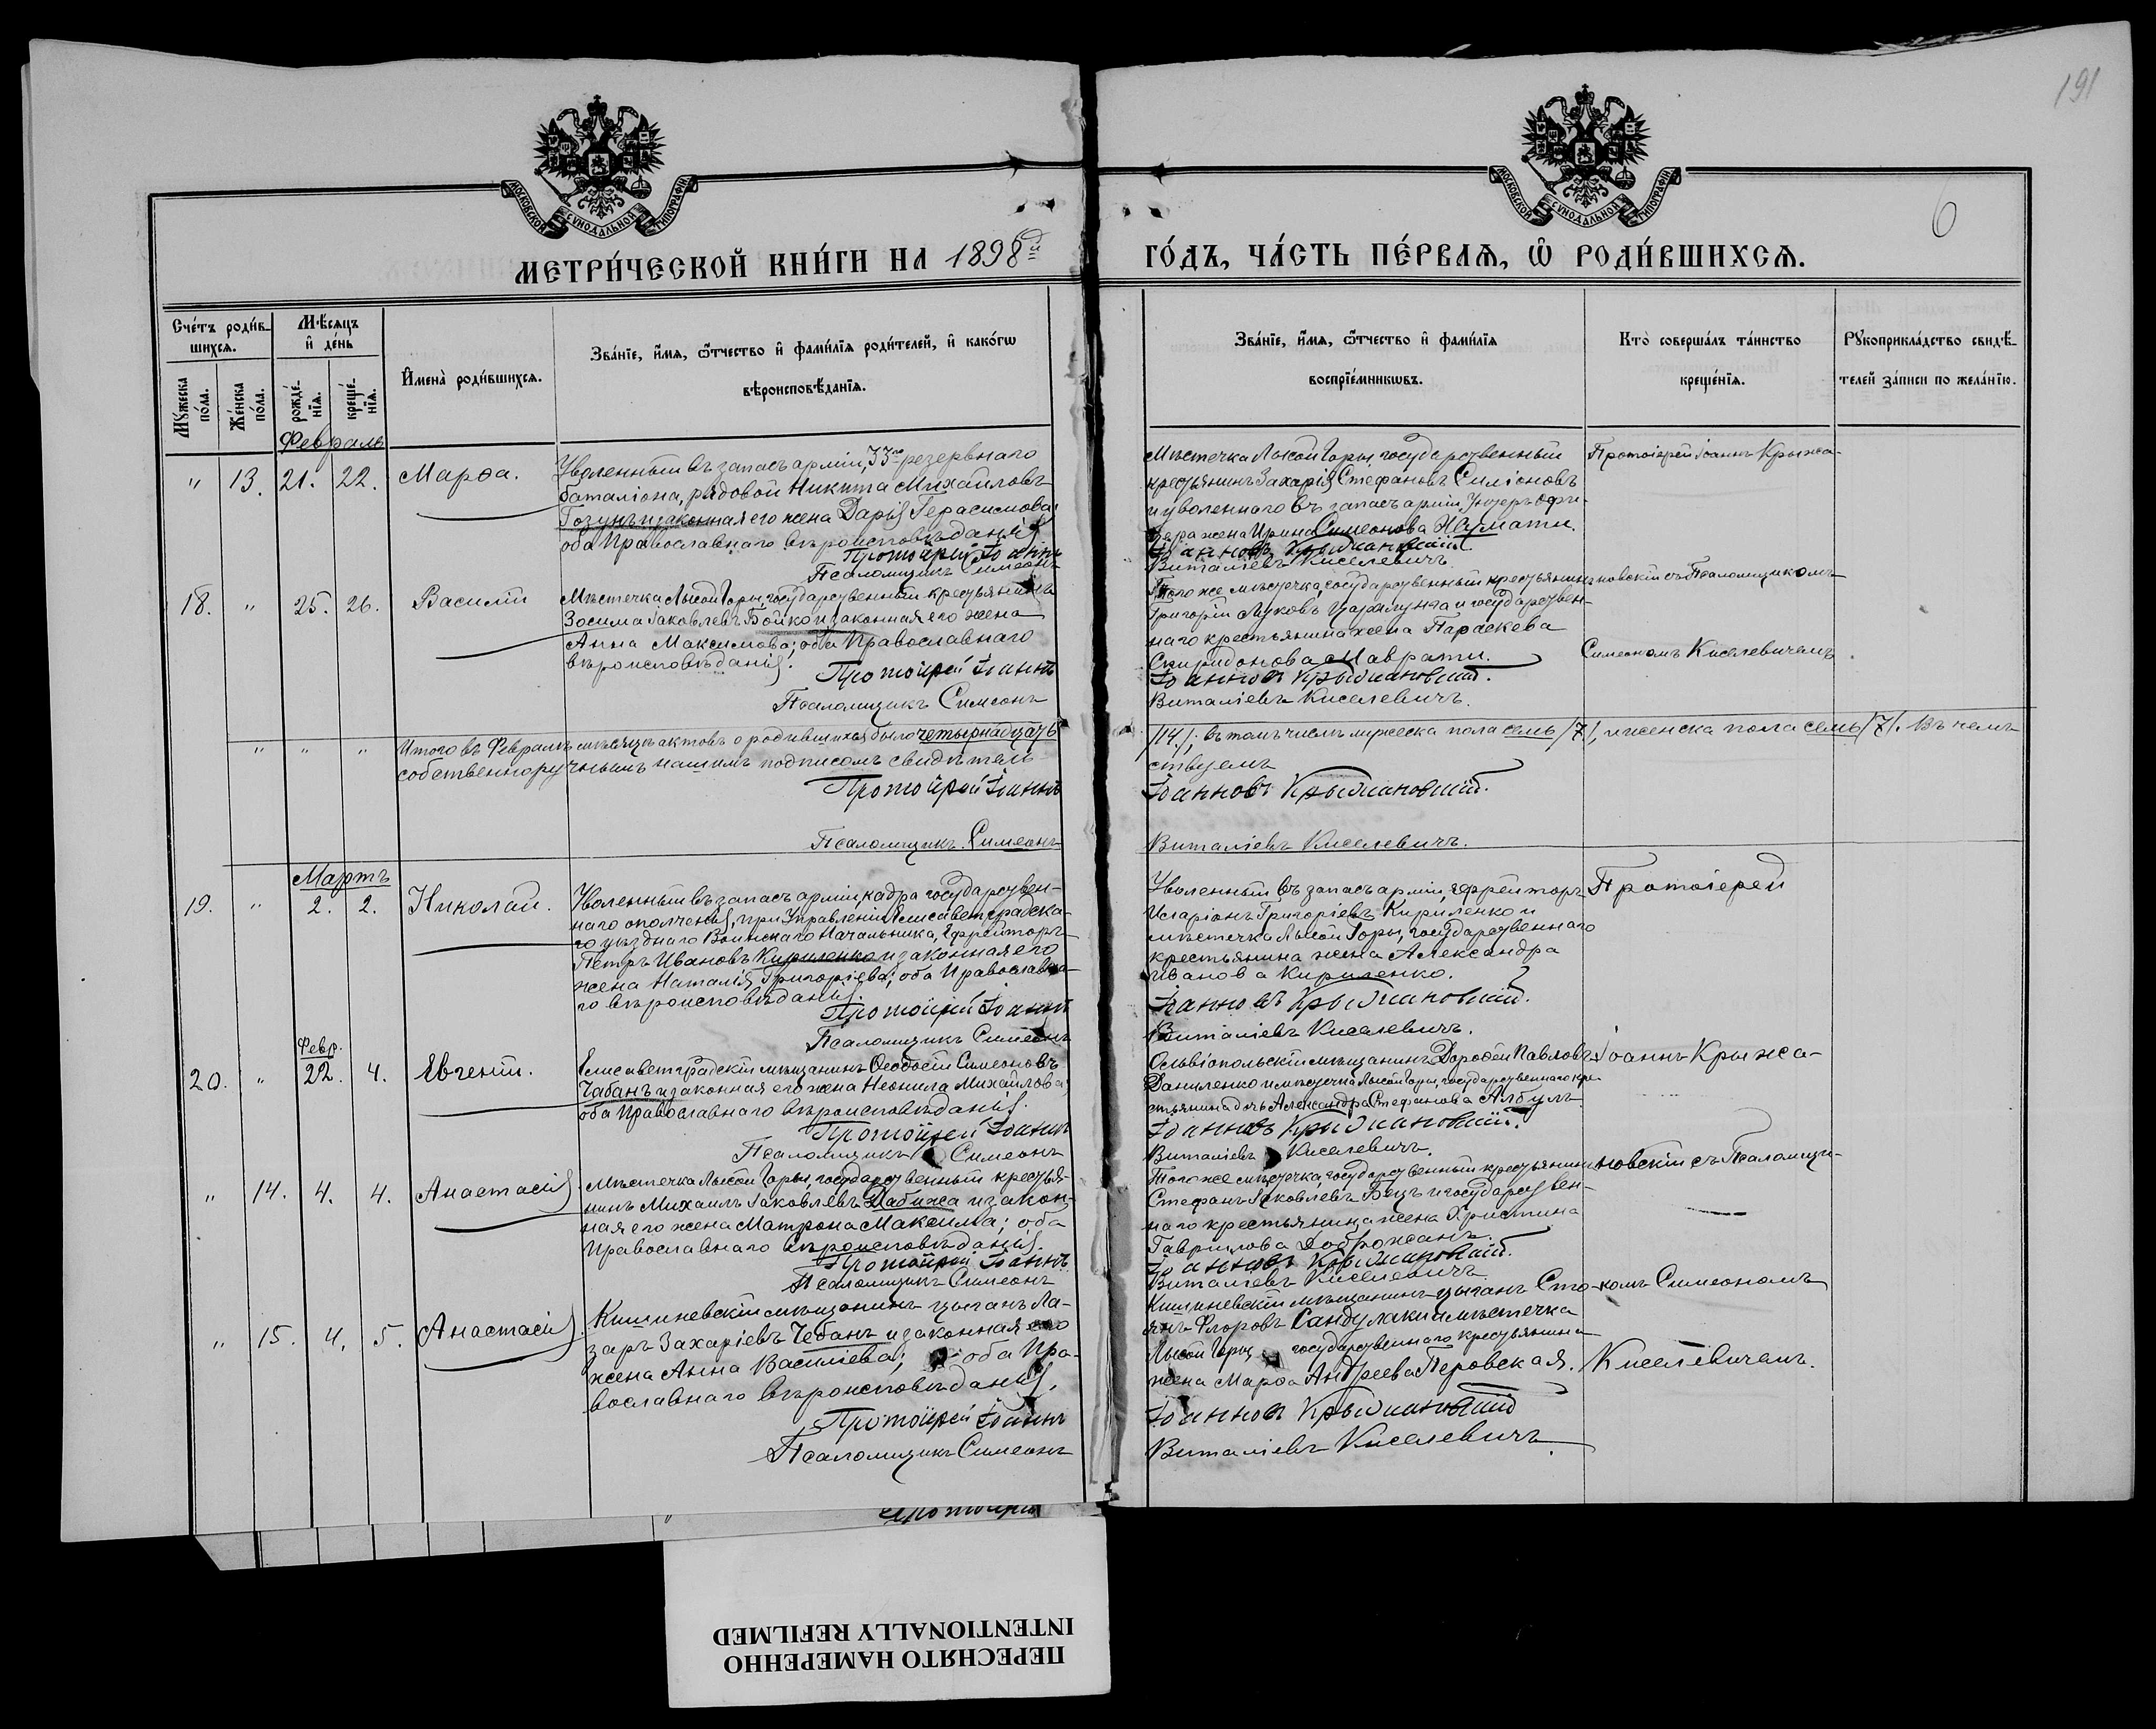 191
6
МОСКОВСКОЙ СѴНОДАЛЬНОЙ ТИПОГРАФІИ
МОСКОВСКОЙ СѴНОДАЛЬНОЙ ТИПОГРАФІИ
МЕТРИ́ЧЕСКОЙ КНИ́ГИ НА 1898й ГО́ДЪ, ЧА́СТЬ ПЕ́РВАѦ, Ѡ҆ РОДИ́ВШИХСѦ.
Сче́тъ роди́в-
шихся.
Мꙋ́жеска по́ла.
Же́нска по́ла.
М́ѣсяцъ и҆ де́нь
рожде́-нїѧ.
креще́-нїѧ.
И҆мена̀ роди́вшихсѧ.
Зва́нїе, и҆́мѧ, ѻ҆́тчество и҆ фами́лїѧ роди́телей, и҆ како́гѡ
вѣроисповѣ́данїѧ.
Зва́нїе, и҆́мѧ, ѻ҆́тчество и҆ фами́лїѧ
воспрїе́мникѡвъ.
Кто̀ соверша́лъ та́инство
креще́нїѧ.
Рꙋкоприкла́дство свидѣ́-
телей за́писи по жела́нїю.
Февраль
" 13. 21. 22. Марѳа.
Уволенный въ запасъ арміи, 33го резервнаго
баталіона, рядовой Никита Михайловъ
Гозунъ и законная его жена Дарія Герасимова;
оба Православнаго вѣроисповѣданія
Протоіерей Іоаннъ
Псаломщикъ Симеонъ
Мѣстечка Лысой Горы, государственный
крестьянинъ Захарія Стефановъ Силіоновъ
и уволеннаго въ запасъ арміи, Унтеръ Офи-
цера жена Ирина Симеонова Хаджмати.
Іоанновъ Крыжановскій.
Виталіевъ Киселевичъ.
Протоіерей Іоаннъ Крыжа-
18. " 25. 26. Василій
Мѣстечка Лысой Горы, государственный крестьянинъ
Зосима Іаковлевъ Бойко и законная его жена
Анна Максимова; оба Православнаго
вѣроисповѣданія.
Протоіерей Іоаннъ
Псаломщикъ Симеонъ
Того же мѣстечка, государственный крестьянинъ
Григорій Луковъ Царалунга и государствен-
наго крестьянина жена Параскева
Спиридонова Маврати.
Іоанновъ Крыжановскій.
Виталіевъ Киселевичъ.
новскій съ Псаломщикомъ
Симеономъ Киселевичемъ.
" " " Итого въ Февралѣ мѣсяцѣ актовъ о родившихся было четырнадцать
/14/; въ томъ числѣ мужеска пола семь /7/, и женска пола семь /7/. Въ чемъ
собственноручнымъ нашимъ подписомъ свидѣтель-
ствуемъ
Протоіерей Іоаннъ
Іоанновъ Крыжановскій.
Псаломщикъ Симеонъ
Виталіевъ Киселевичъ.
Мартъ
19. " 2. 2. Николай.
Уволенный въ запасъ арміи, кадра государствен-
наго ополченія, при Управленіи Елисаветградска-
го уѣзднаго Воинскаго Начальника, Ефрейторъ
Петръ Ивановъ Кириленко и законная его
жена Наталія Григоріева; оба Православна-
го вѣроисповѣданія.
Протоіерей Іоаннъ
Псаломщикъ Симеонъ
Уволенный въ запасъ арміи, ефрейторъ
Иларіонъ Григоріевъ Кириленко и
мѣстечка Лысой Горы, государственнаго
крестьянина жена Александра
Иванова Кириленко.
Іоанновъ Крыжановскій.
Виталіевъ Киселевичъ.
Протоіерей
Февр.
20. " 22. 4. Евгеній.
Елисаветградскій мѣщанинъ Ѳеодосій Симеоновъ
Чабанъ и законная его жена Неонила Михайлова;
оба Православнаго вѣроисповѣданія.
Протоіерей Іоаннъ
Псаломщикъ Симеонъ
Ольвіопольскій мѣщанинъ Дороѳей Павловъ
Даниленко и мѣстечка Лысой Горы, государственнаго кре-
стьянина дочь Александра Стефанова Албулъ.
Іоанновъ Крыжановскій.
Виталіевъ Киселевичъ.
Іоаннъ Крыжа-
" 14. 4. 4. Анастасія
Мѣстечка Лысой Горы, государственный крестья-
нинъ Михаилъ Іаковлевъ Дабижа и закон-
ная его жена Матрона Максима; оба
Православнаго вѣроисповѣданія.
Протоіерей Іоаннъ
Псаломщикъ Симеонъ
Того же мѣстечка, государственный крестьянинъ
Стефанъ Іаковлевъ Бецъ и государствен-
наго крестьянина жена Христина
Гаврилова Доброжанъ.
Іоанновъ Крыжановскій.
Виталіевъ Киселевичъ
новскій съ Псаломщи-
" 15. 4. 5. Анастасія
Кишиневскій мѣщанинъ цыганъ Ла-
заръ Захаріевъ Чебанъ и законная его
жена Анна Василіева; оба Пра-
вославнаго вѣроисповѣданія.
Протоіерей Іоаннъ
Псаломщикъ Симеонъ
Кишиневскій мѣщанинъ цыганъ Сто-
янъ Флоровъ Сандулаки и мѣстечка
Лысой Горы государственнаго крестьянина
жена Марѳа Андреева Перовская.
Іоанновъ Крыжановскій
Виталіевъ Киселевичъ.
комъ Симеономъ
Киселевичемъ.
Протоіерей
ПЕРЕСНЯТО НАМЕРЕННО
INTENTIONALLY REFILMED